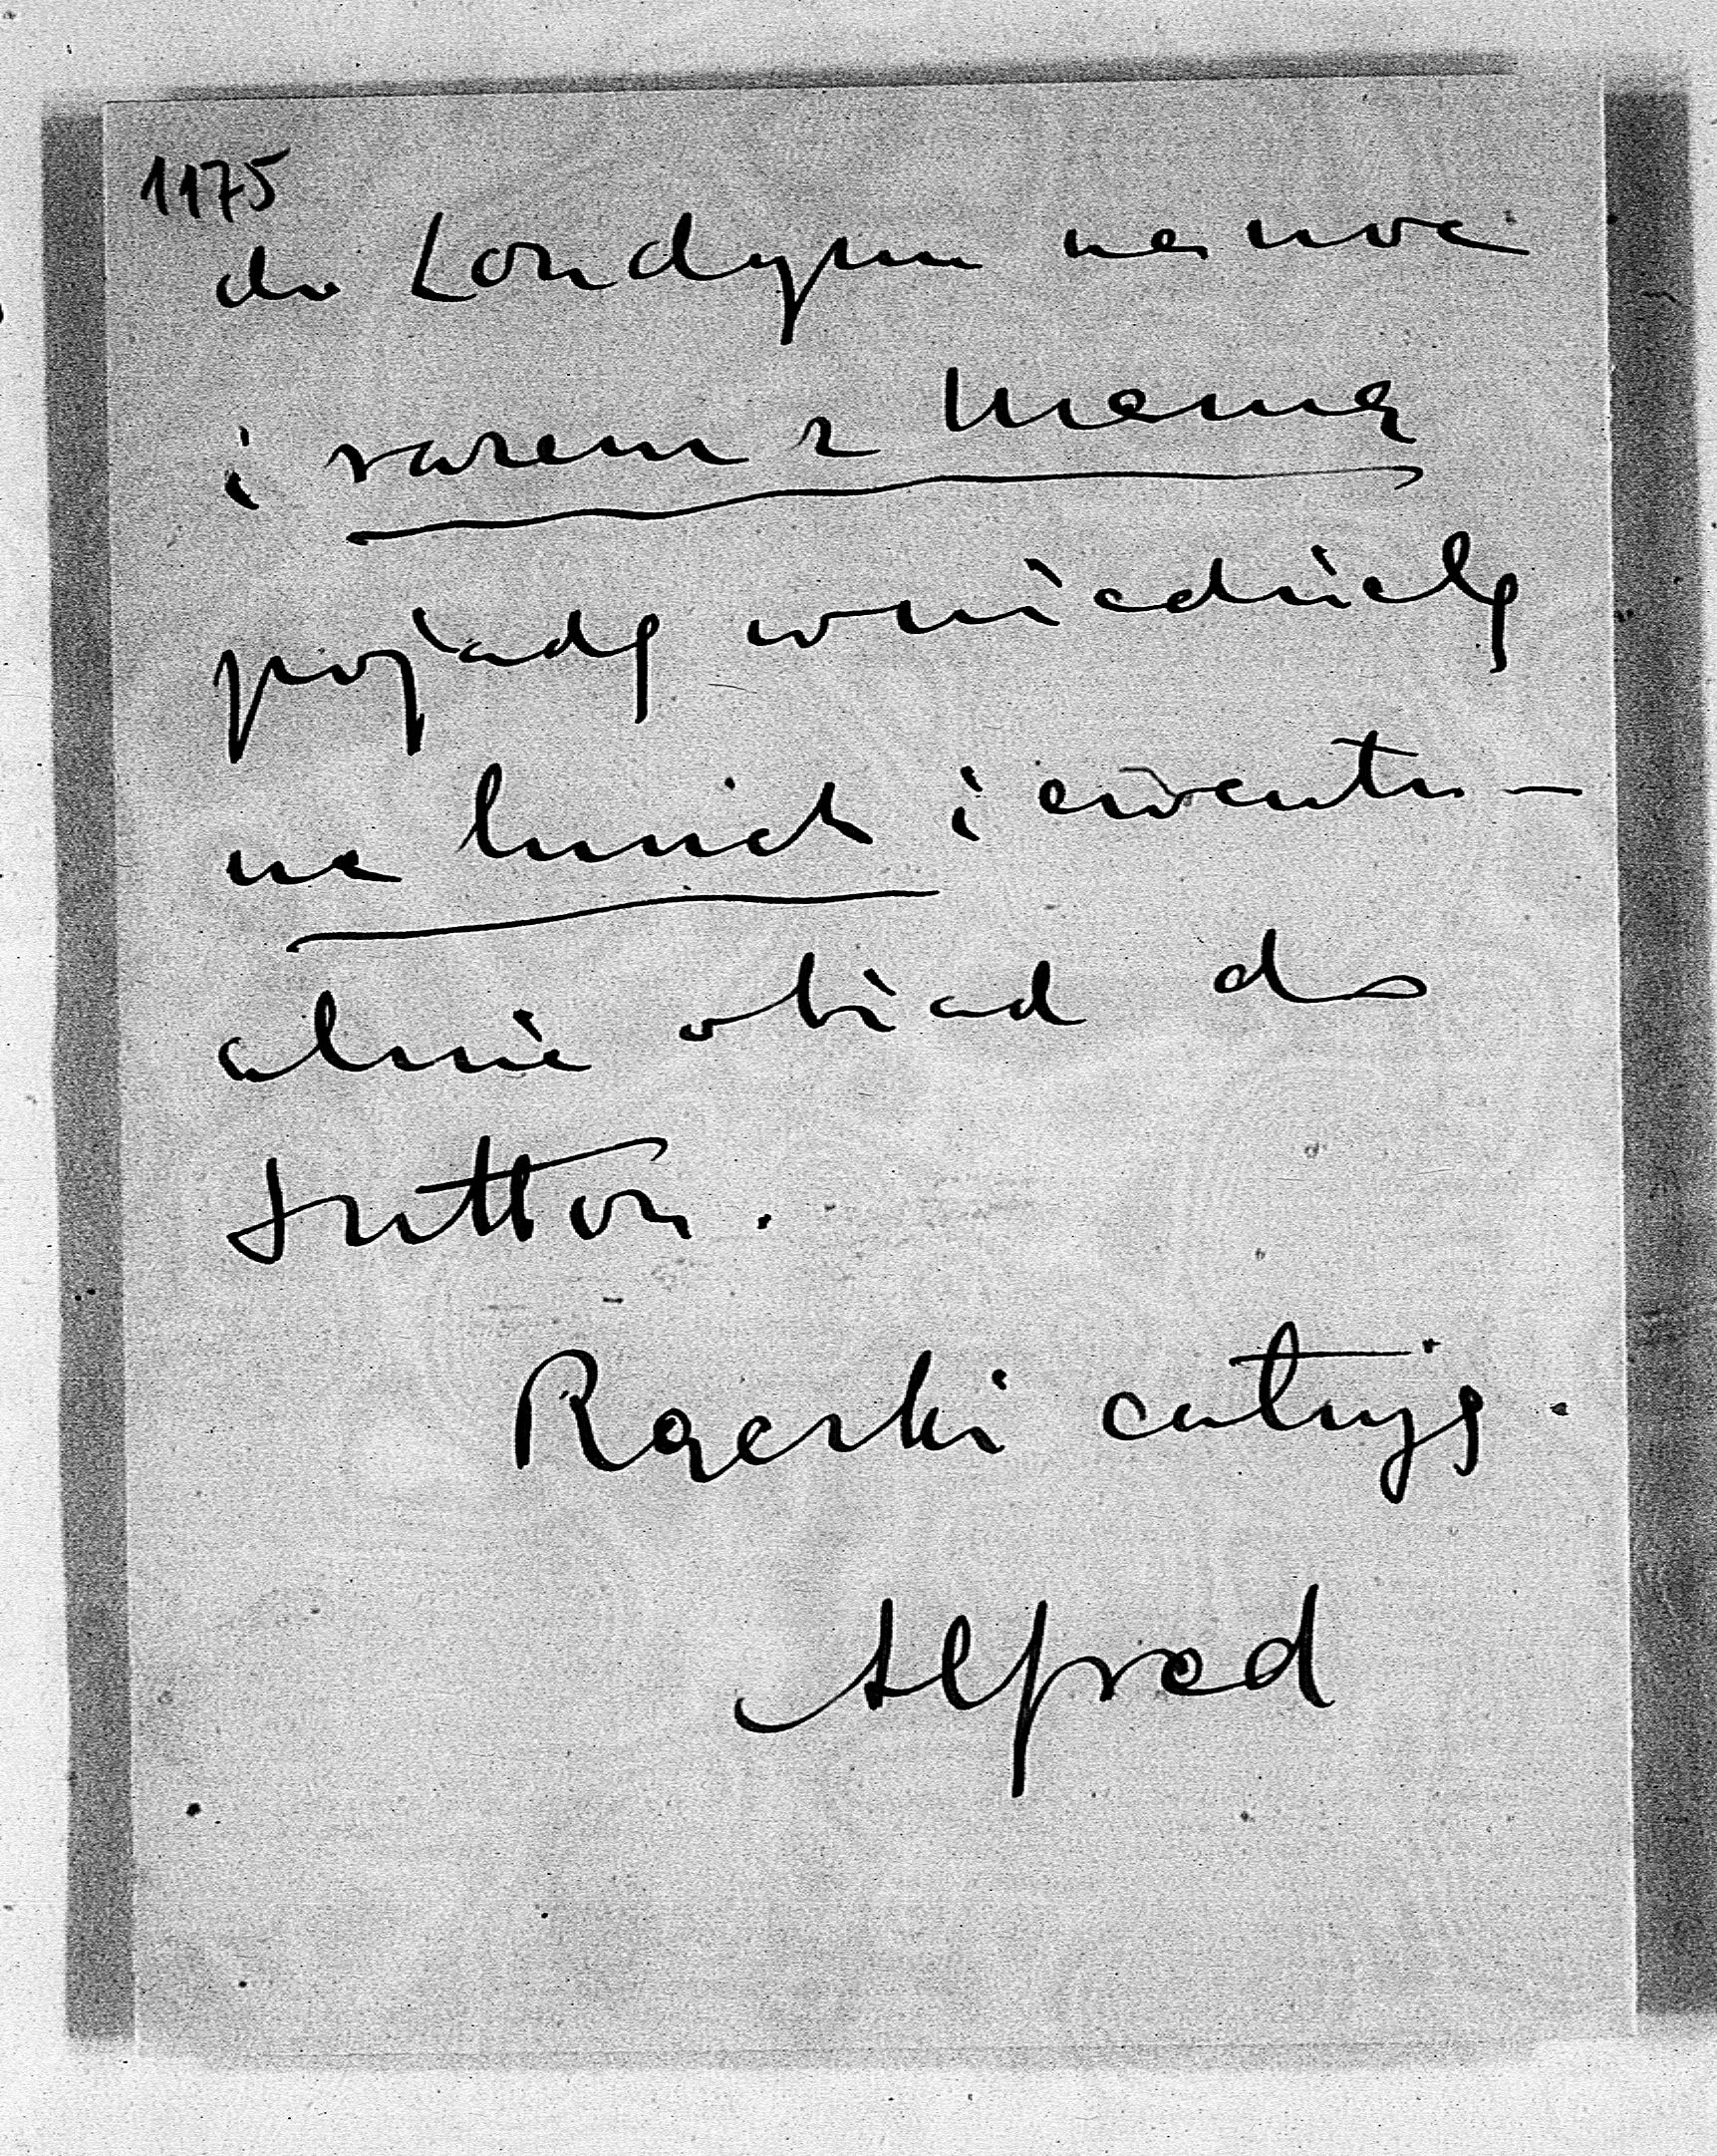 1175
do Londynu na noc
i razem z Mamą
pojadę w niedzielę
na lunch i ewentu-
alnie obiad do
Sutton.
Rączki całuję.
Alfred